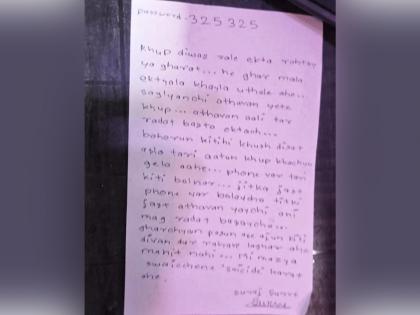 password - 325325
khup diwas zale ekta rahtoy
ya gharat... he ghar mala
ektyala khayla uthale ahe...
saglyanchi athavan yete
khup... athavan aali tar
radat basto ektach...
baherun kitihi khush disat
asla tari aatun khup khachun
gela aahe... phone var tari
kiti bolnar... jitka jast
phone var bolaycha titki
jast athavan yaychi ani
mag radat basaycha...
gharchyan pasun ajun kiti
divas dur rahave lagnar ahe
mahit nahi... Mi mazya
swaicchene 'suicide' karat
ahe.
suraj